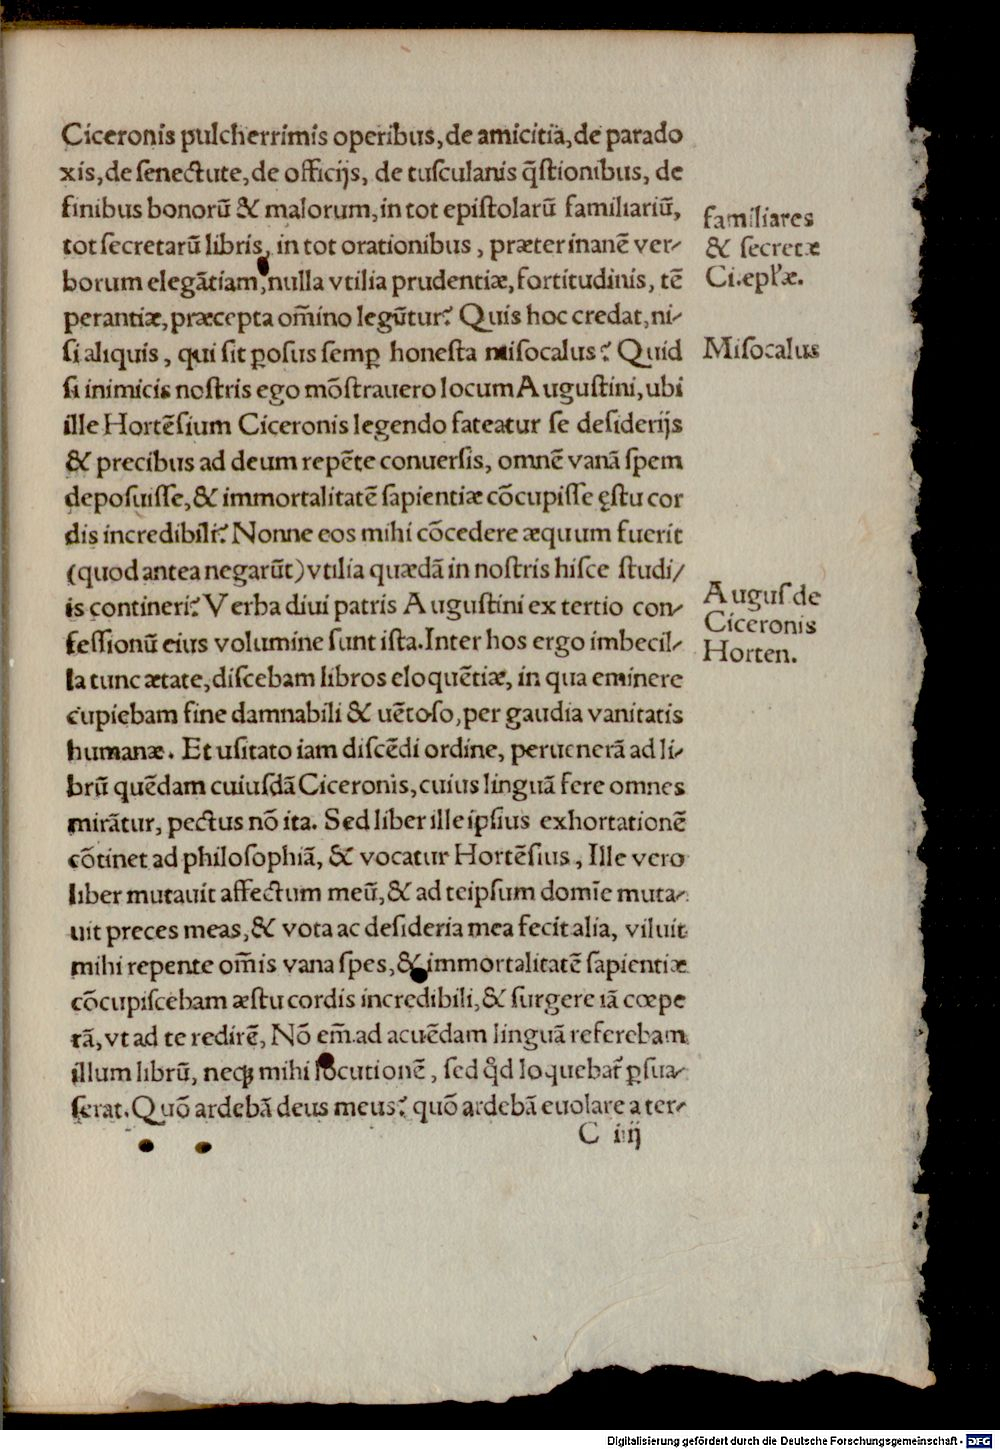 Ciceronis pulcherrimis operibus, de amicitiā, de parado
xis, de senectute, de officijs, de tusculanis q̄stionibus, de
finibus bonorū & malorum, in tot epistolarū familiariū,
tot secretarū libris, in tot orationibus, præter inanē ver-
borum elegātiam, nulla vtilia prudentiæ, fortitudinis, tē
perantiæ, præcepta om̄ino legūtur? Quis hoc credat, ni-
si aliquis, qui sit ꝑosus semꝑ honesta misocalus? Quid
si inimicis nostris ego mōstrauero locum Augustini, ubi
ille Hortēsium Ciceronis legendo fateatur se desiderijs
& precibus ad deum repēte conuersis, omnē vanā spem
deposuisse, & immortalitatē sapientiæ cōcupisse ęstu cor
dis incredibili? Nonne eos mihi cōcedere æquum fuerit
(quod antea negarūt) vtilia quædā in nostris hisce studi/
is contineri? Verba diui patris Augustini ex tertio con-
fessionū eius volumine sunt ista. Inter hos ergo imbecil-
la tunc ætate, discebam libros eloquētiæ, in qua eminere
cupiebam fine damnabili & uētoso, per gaudia vanitatis
humanæ. Et usitato iam discēdi ordine, peruenerā ad li-
brū quēdam cuiusdā Ciceronis, cuius linguā fere omnes
mirātur, pectus nō ita. Sed liber ille ipsius exhortationē
cōtinet ad philosophiā, & vocatur Hortēsius, Ille vero
liber mutauit affectum meū, & ad teipsum domīe muta-
uit preces meas, & vota ac desideria mea fecit alia, viluit
mihi repente om̄is vana spes, & immortalitatē sapientiæ
cōcupiscebam æstu cordis incredibili, & surgere iā cœpe
rā, vt ad te redirē, Nō em̄ ad acuēdam linguā referebam
illum librū, neqꝫ mihi locutionē, sed qd̄ loquebat̃ ꝑsua-
serat. Quō ardebā deus meus? quō ardebā euolare a ter-
C iiij
familiares
& secretæ
Ci. epłæ.
Misocalus
Augus de
Ciceronis
Horten.
Digitalisierung gefördert durch die Deutsche Forschungsgemeinschaft - DFG